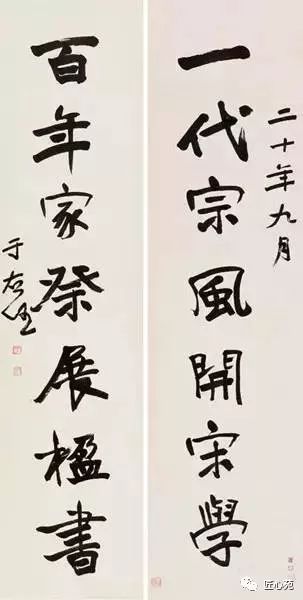 二十年九月
一代宗風開宋學
百年家祭展楹書
于右任
匠心苑